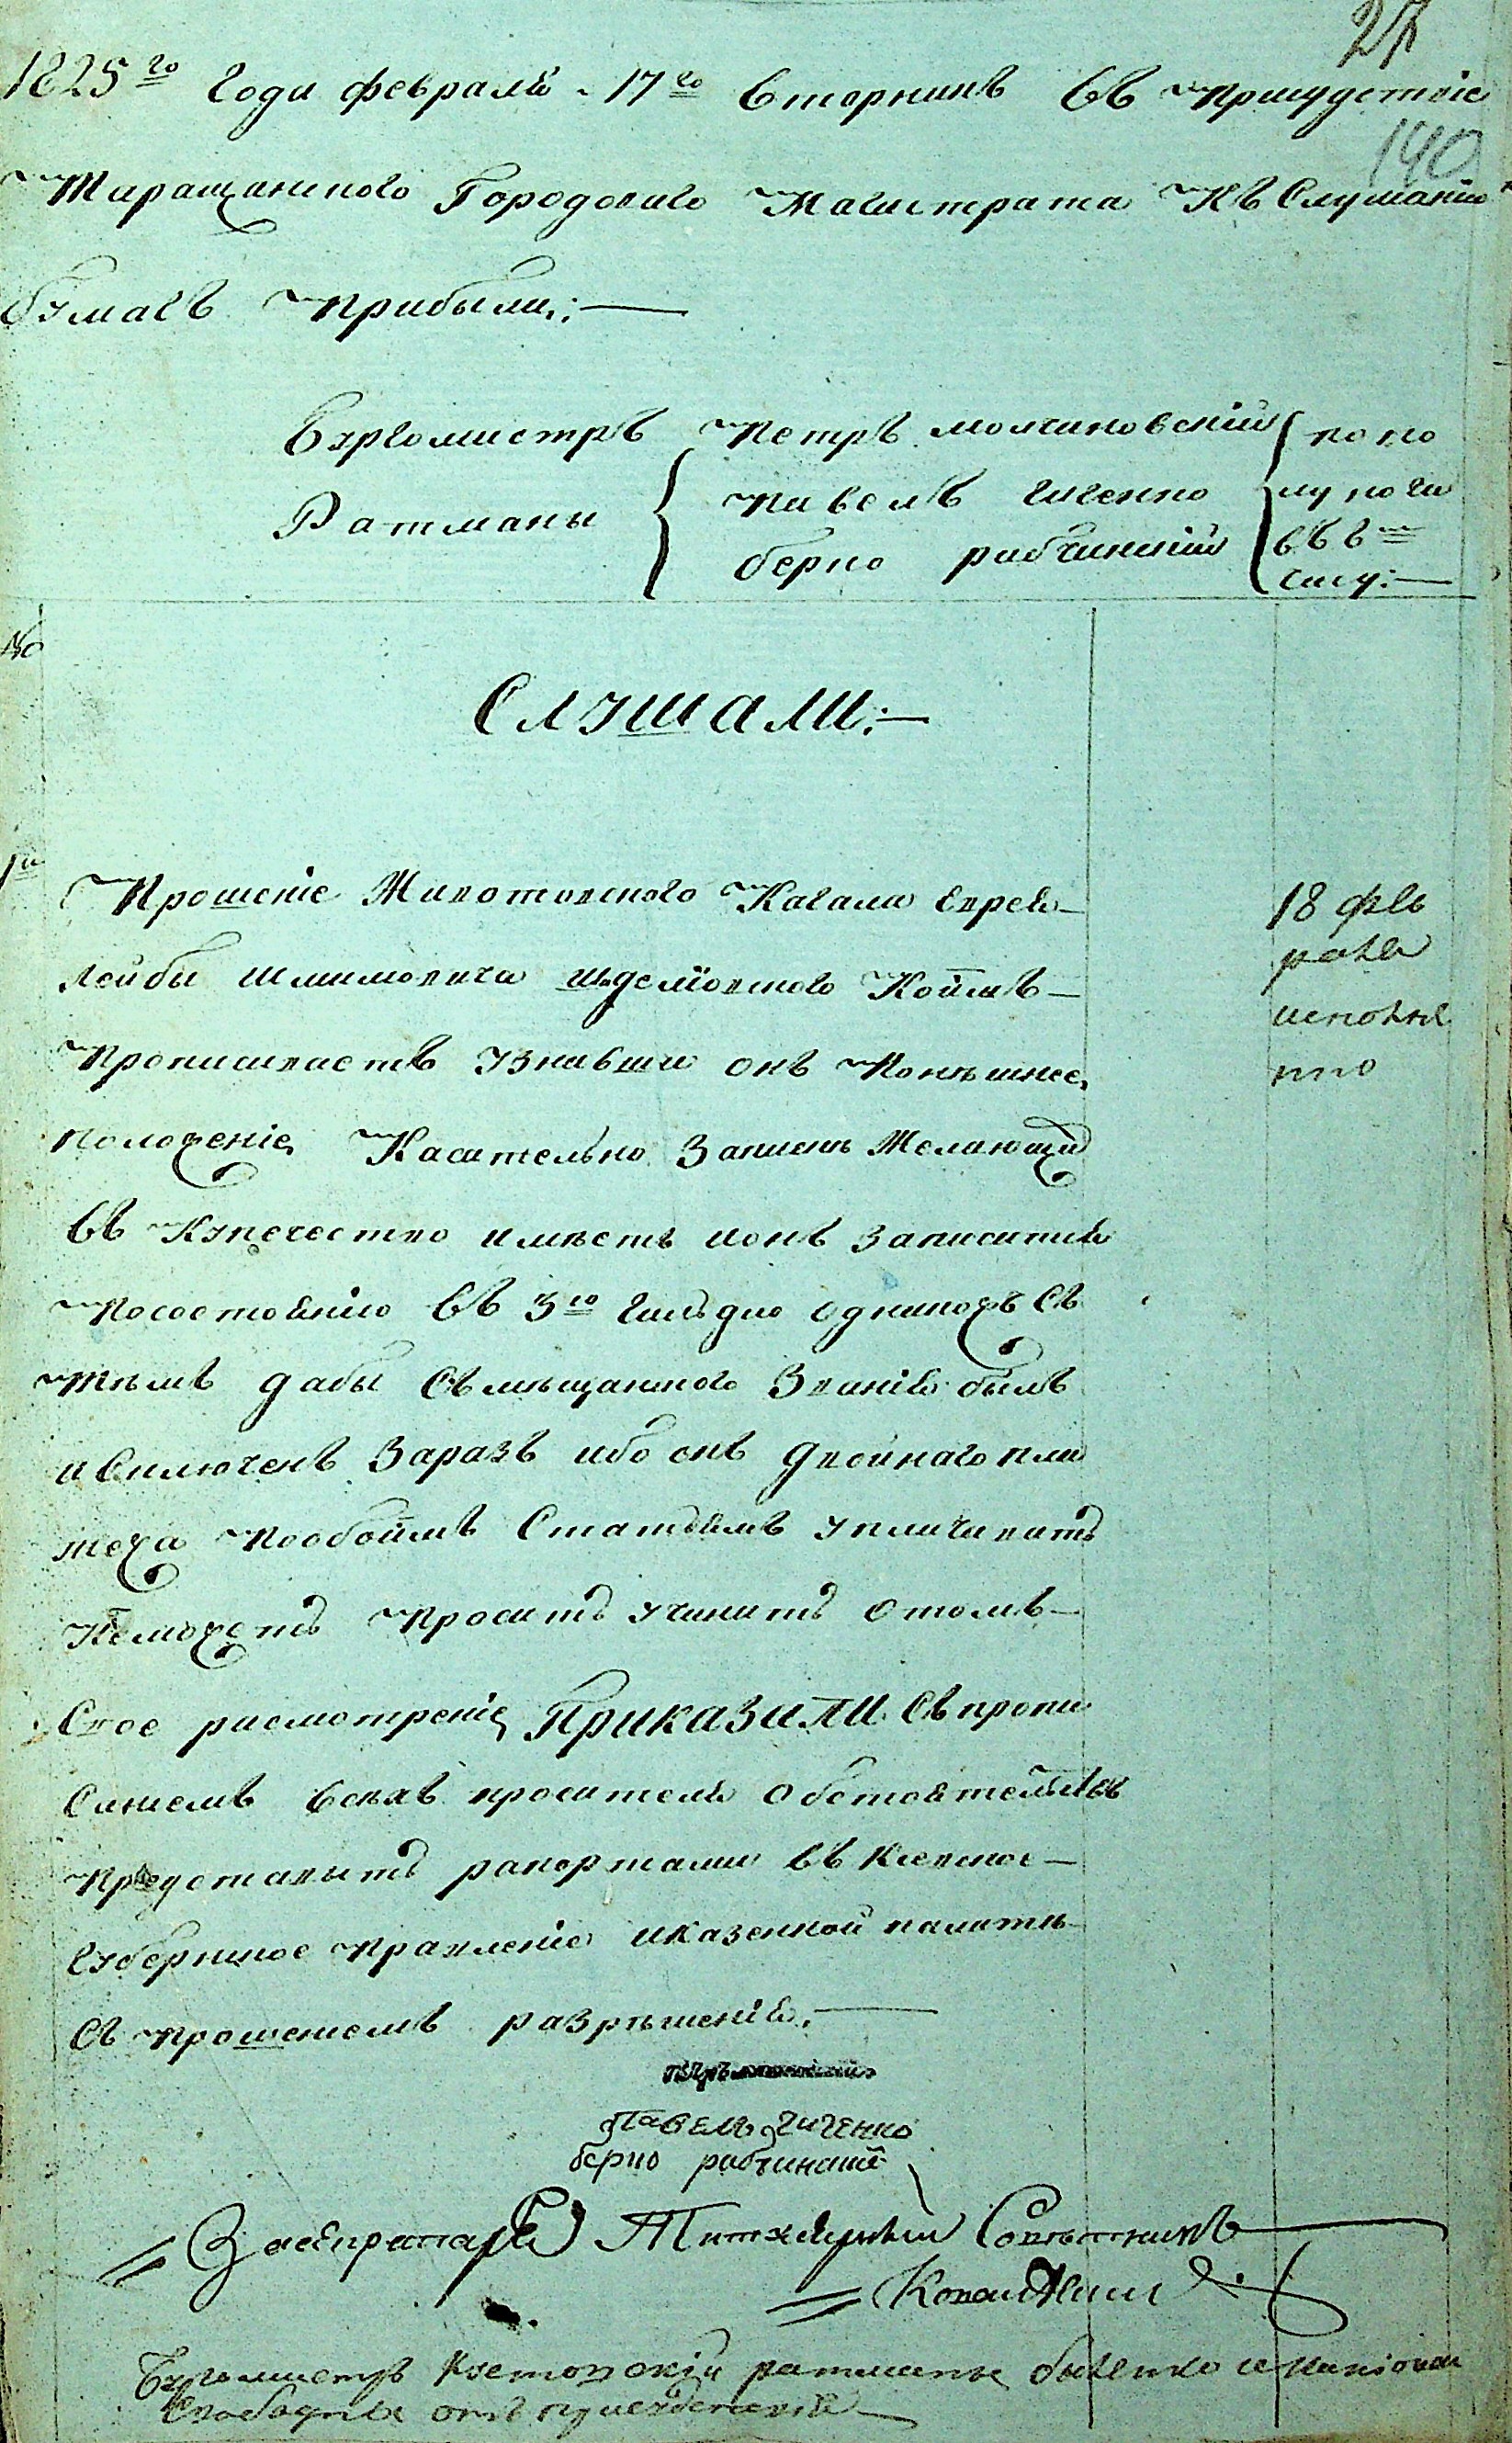 27
140
1825го года февраля 17го вторникъ въ присудствіе
Таращанского Городового Магистрата къ Слушанію
бумагъ прибыли:
Бургомистръ Петръ молчановскій
Ратманы
Павелъ гиченко
берко рабчинскій
по по
лу ночи
въ 8м
часу:
№
Слушали:
1е
Прошеніе Животовского Кагала Еврея
Лейбы Шлимовича коимъ
прописиваетъ узнавши онъ нонѣшнее
положеніе касательно записки желающи
въ купечество имѣетъ ионъ записатися
посостоянію въ 3ю гильдію однакожъ съ
тѣмъ дабы съ мѣщанского званія былъ
исключенъ заразъ ибо онъ двойнаго пла
тежа пообоимъ статьямъ уплачивать
неможетъ проситъ учинить отомъ
свое расмотреніе Приказали съ пропи
санiемъ всехъ просителя обстоятельствъ
представить рапортами въ Киевское
Губернское правленіе иказенной палатѣ
съ прошениемъ разрѣшенія.
18 фев
раля
исполне
нно
Павелъ гиченко
берко рабчинский
За секретаря Титулярный Советникъ
Бургомистръ ратманы
свободны отъ присудствія